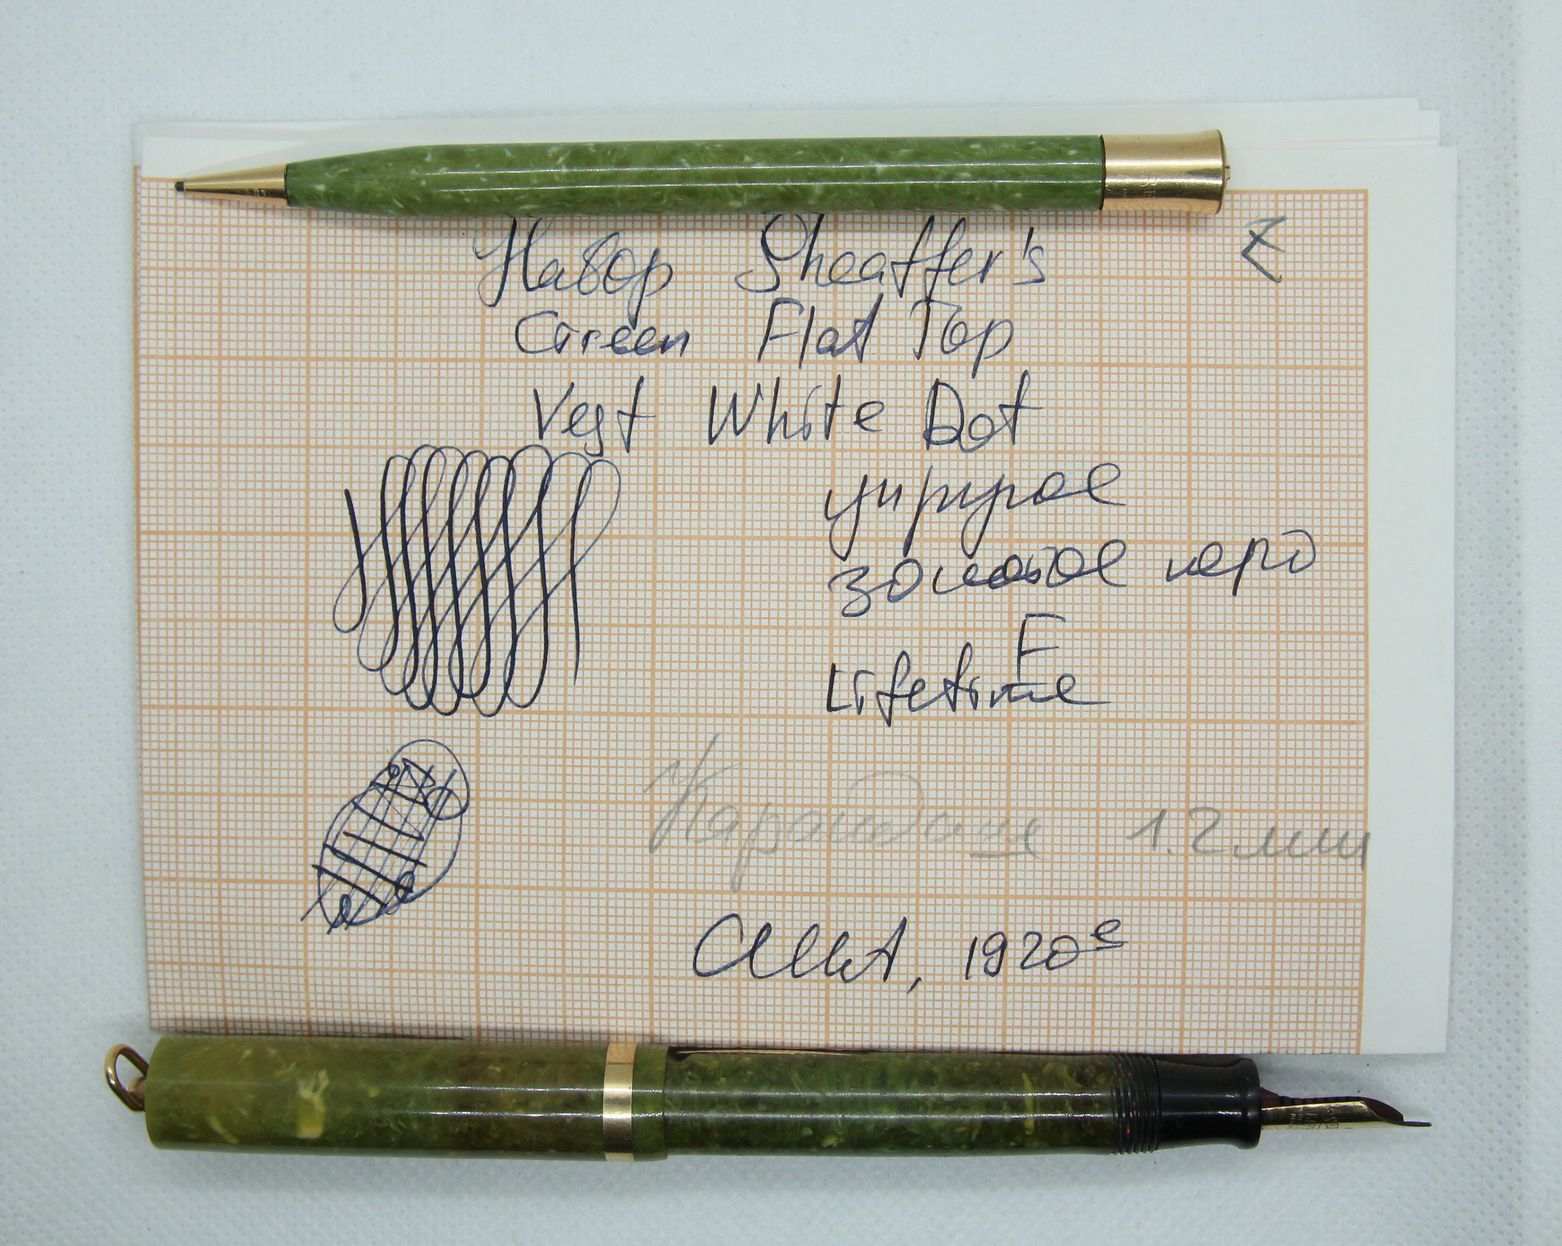 Набор Sheaffer's
Green Flat Top
Vest White Dot
упругое
золотое перо
F
Lifetime
Карандаш 1.2 мм
США, 1920е